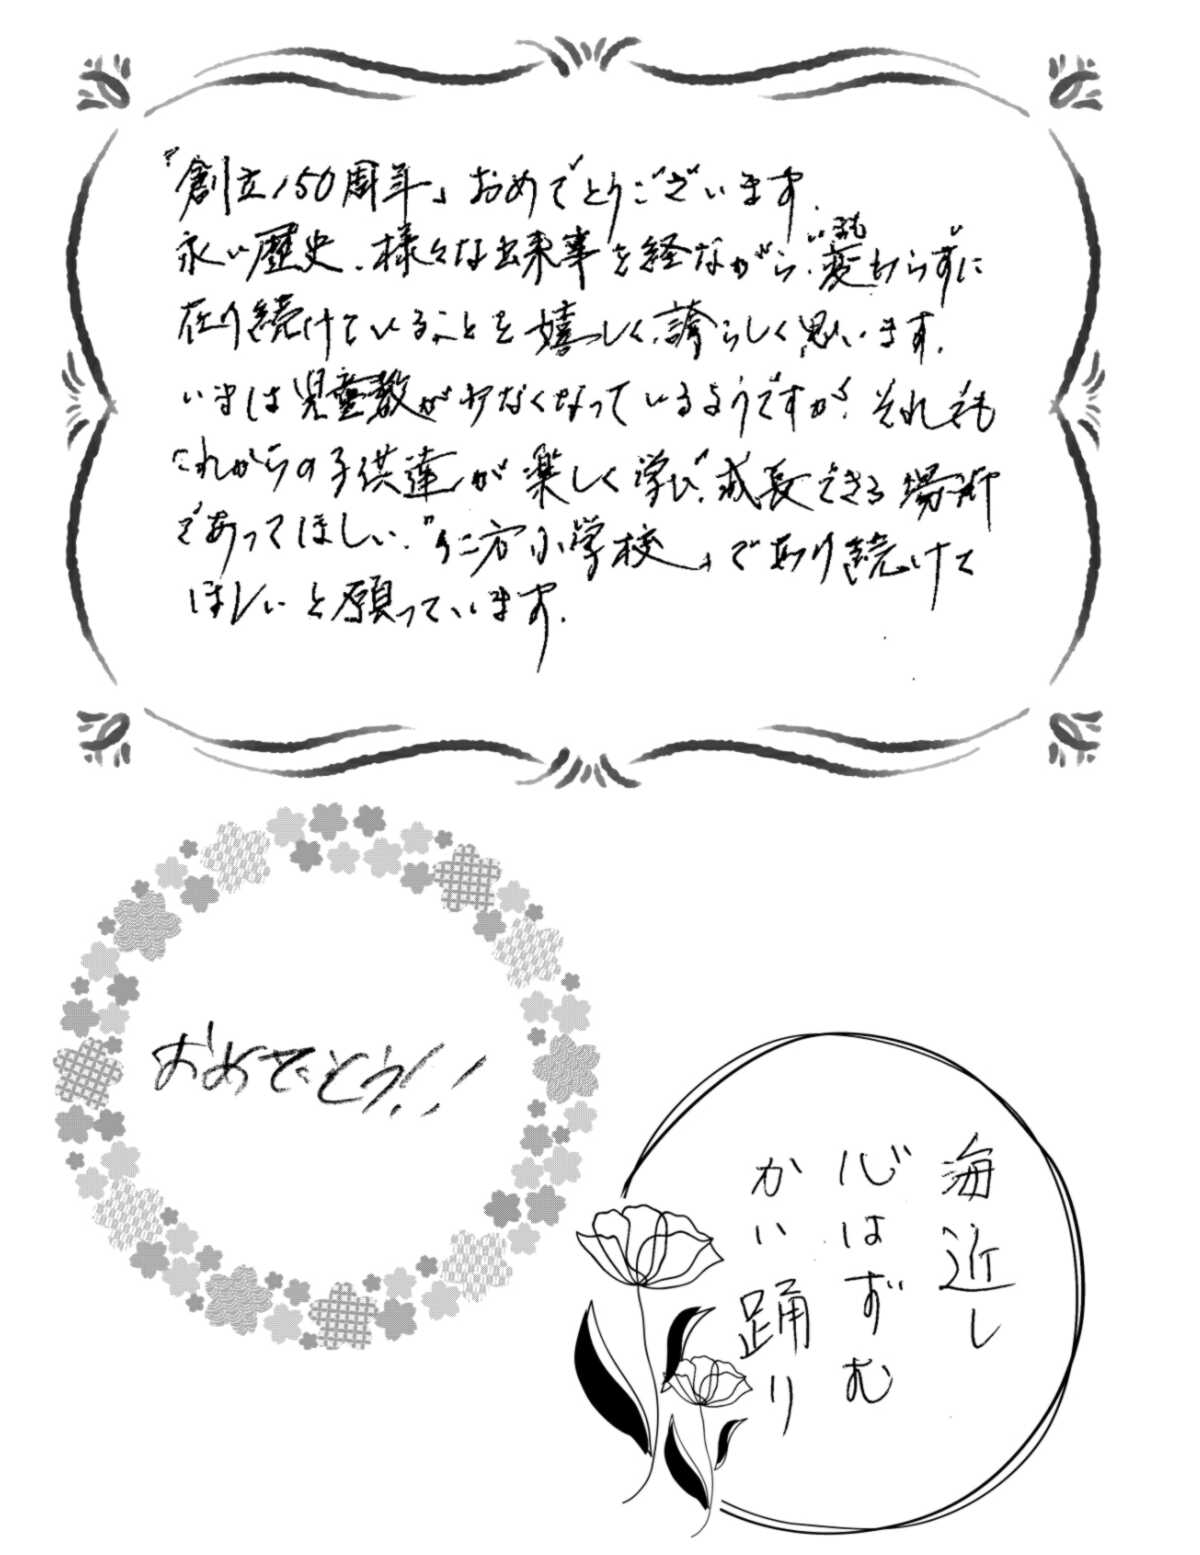 『創立150周年』おめでとうございます.
永い歴史、様々な出来事を経ながら、今も変わらずに
在り続けていることを嬉しく、誇らしく思います.
いまは児童数が少なくなっているようですが、それでも
これからの子供達が楽しく学び、成長できる場所
であってほしい、『仁方小学校』であり続けて
ほしいと願っています.
おめでとう!!
海近し
心はずむ
かい踊り